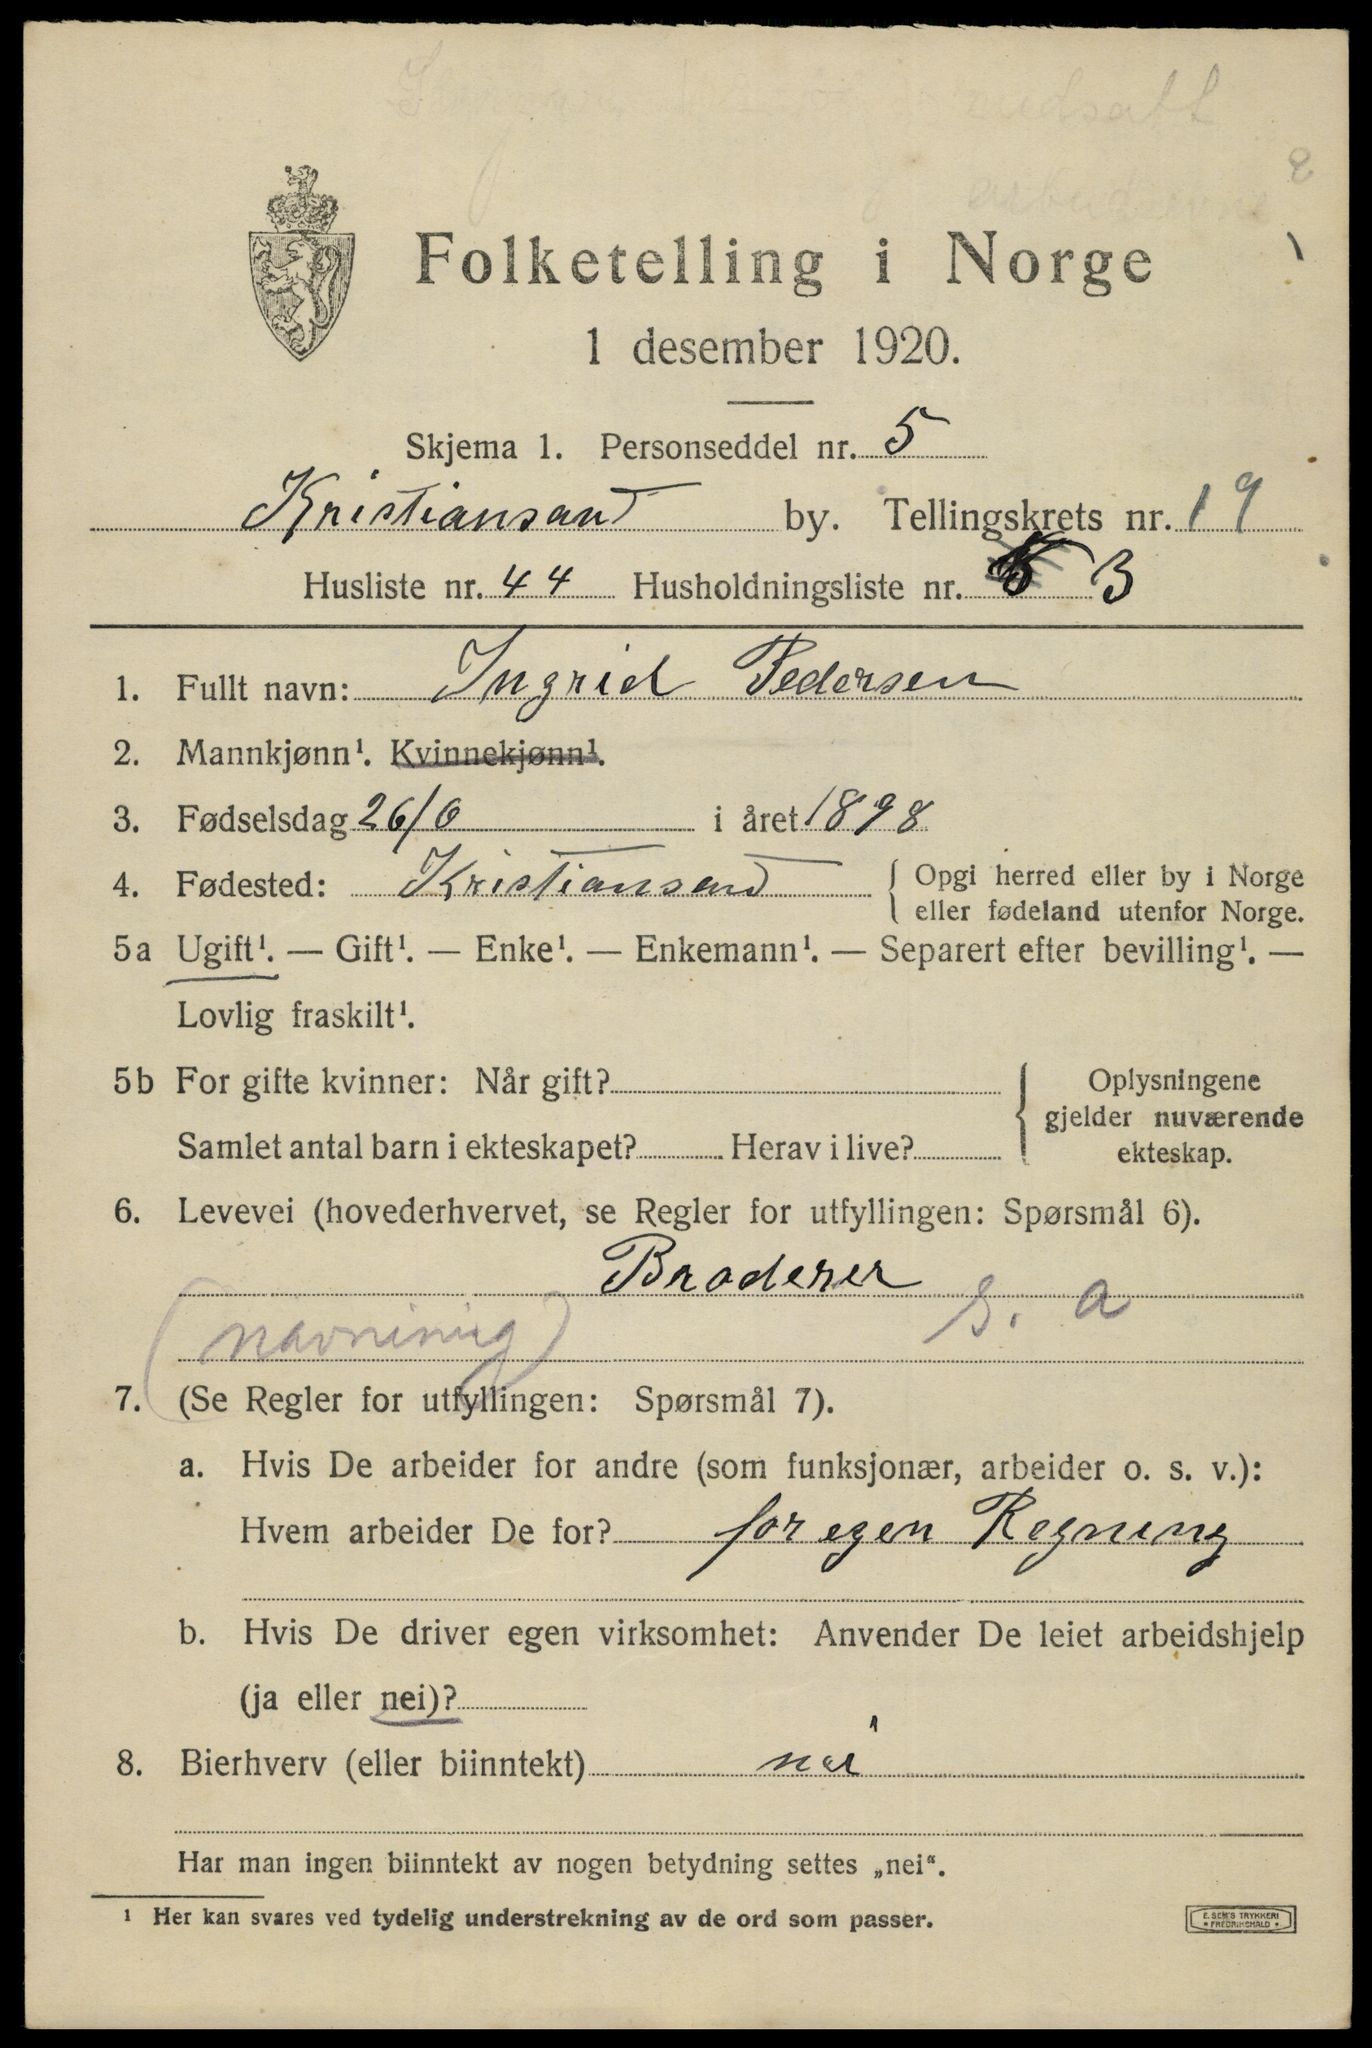 nedsatt
Folketelling i Norge
1 desember 1920.
Skjema 1. Personseddel nr. 5
Kristiansand by. Tellingskrets nr. 19
Husliste nr. 44 Husholdningsliste nr. 3
1. Fullt navn: Ingrid Pedersen
2. Mannkjønn¹. Kvinnekjønn¹.
3. Fødselsdag 26/6 i året 1898
4. Fødested: Kristiansand { Opgi herred eller by i Norge
eller fødeland utenfor Norge.
5a Ugift¹. — Gift¹. — Enke¹. — Enkemann¹. — Separert efter bevilling¹. —
Lovlig fraskilt¹.
5b For gifte kvinner: Når gift? { Oplysningene
gjelder nuværende
Samlet antal barn i ekteskapet? Herav i live? ekteskap.
6. Levevei (hovederhvervet, se Regler for utfyllingen: Spørsmål 6).
Broderer
(navning) s. a
7. (Se Regler for utfyllingen: Spørsmål 7).
a. Hvis De arbeider for andre (som funksjonær, arbeider o. s. v.):
Hvem arbeider De for? for egen Regning
b. Hvis De driver egen virksomhet: Anvender De leiet arbeidshjelp
(ja eller nei)?
8. Bierhverv (eller biinntekt) nei
Har man ingen biinntekt av nogen betydning settes „nei“.
¹ Her kan svares ved tydelig understrekning av de ord som passer.
E. SEM'S TRYKKERI
• FREDRIKSHALD •